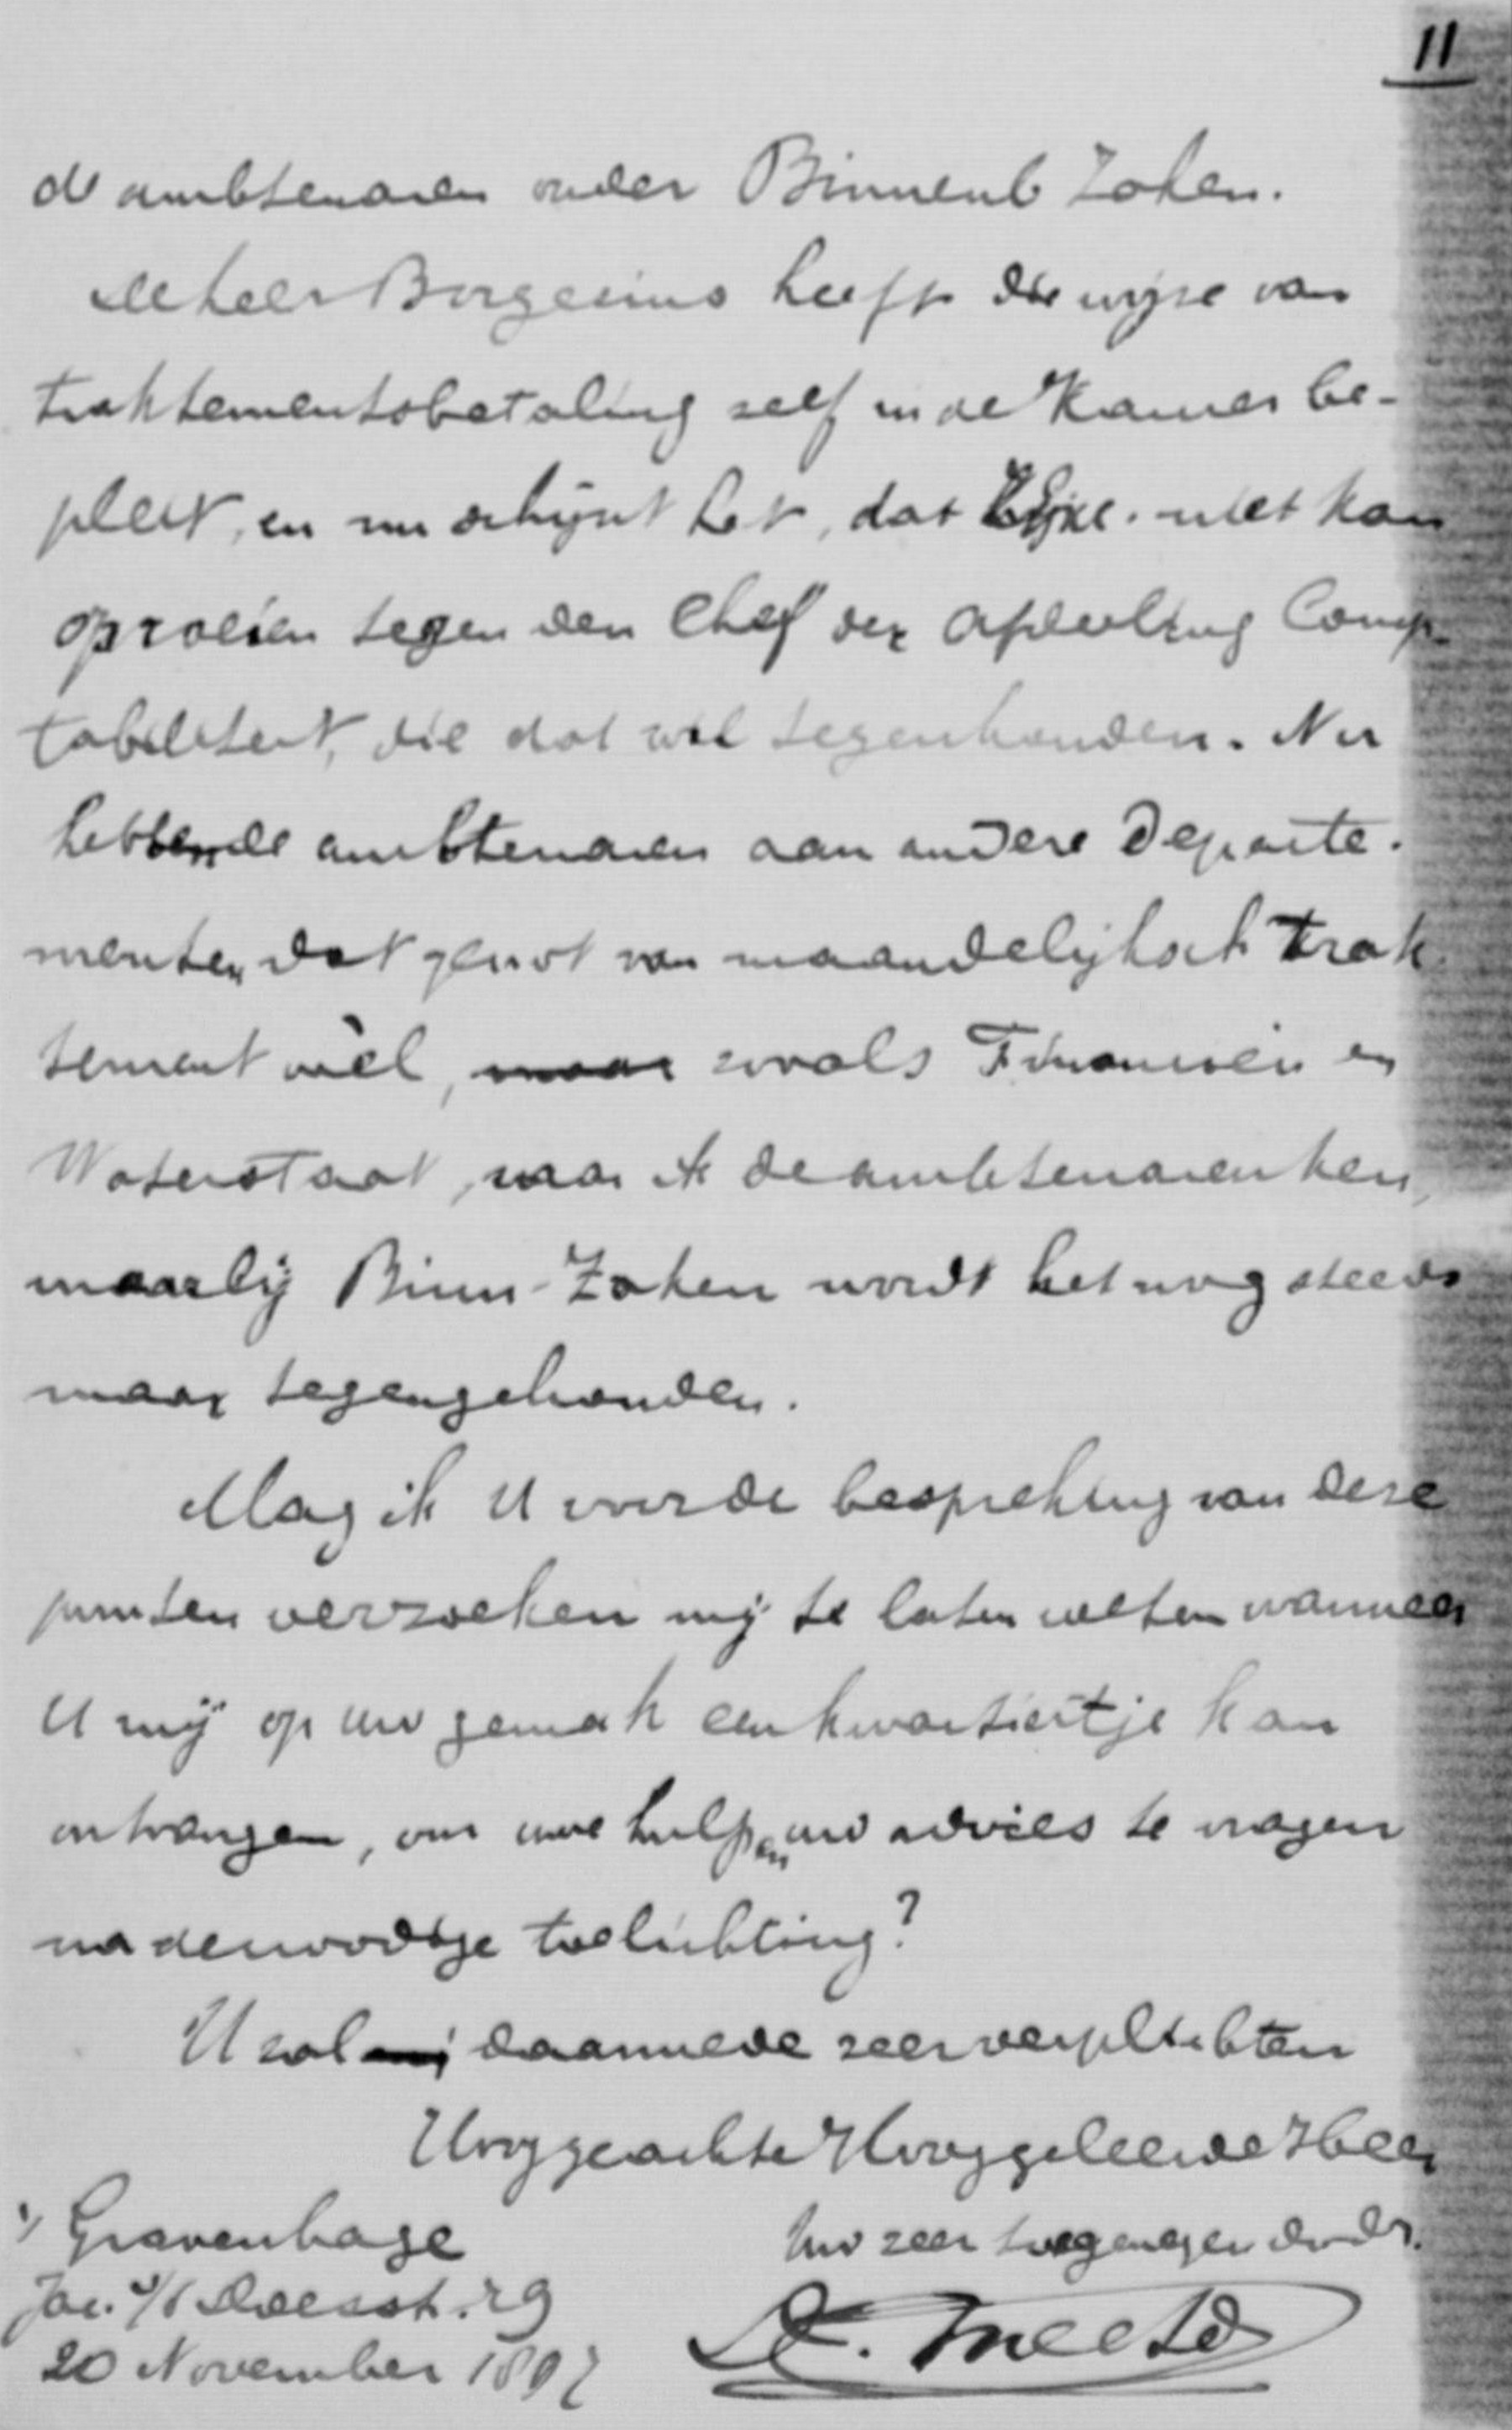 11
de ambtenaren onder Binnenl Zaken.
de heer Borgesius heeft die wijze van
traktementsbetaling zelf in de Kamer be-
pleit, en nu schijnt het, dat niet kan
oproeien tegen den Chef der Afdeeling Comp-
tabiliteit, die dat wil tegenhouden. Nu
hebben de ambtenaren aan andere Departe-
menten dat genot van maandelijksch trak-
tement wèl, zooals Financiën en
Waterstaat, waar ik de ambtenaren ken,
maar bij Binn-Zaken wordt het nog steeds
maar tegengehouden.
Mag ik U voor de bespreking van deze
punten verzoeken mij te laten weten wanneer
U mij op uw gemak een kwartiertje kan
ontvangen, om uwe hulp en uw advies te vragen
na de noodige toelichting?
U zal daarmede zeer verplichten
Hooggeachte Hooggeleerde Heer
's Gravenhage
Uw zeer toegenegen
Jac. v/d Doesstr. 29
20 November 1897